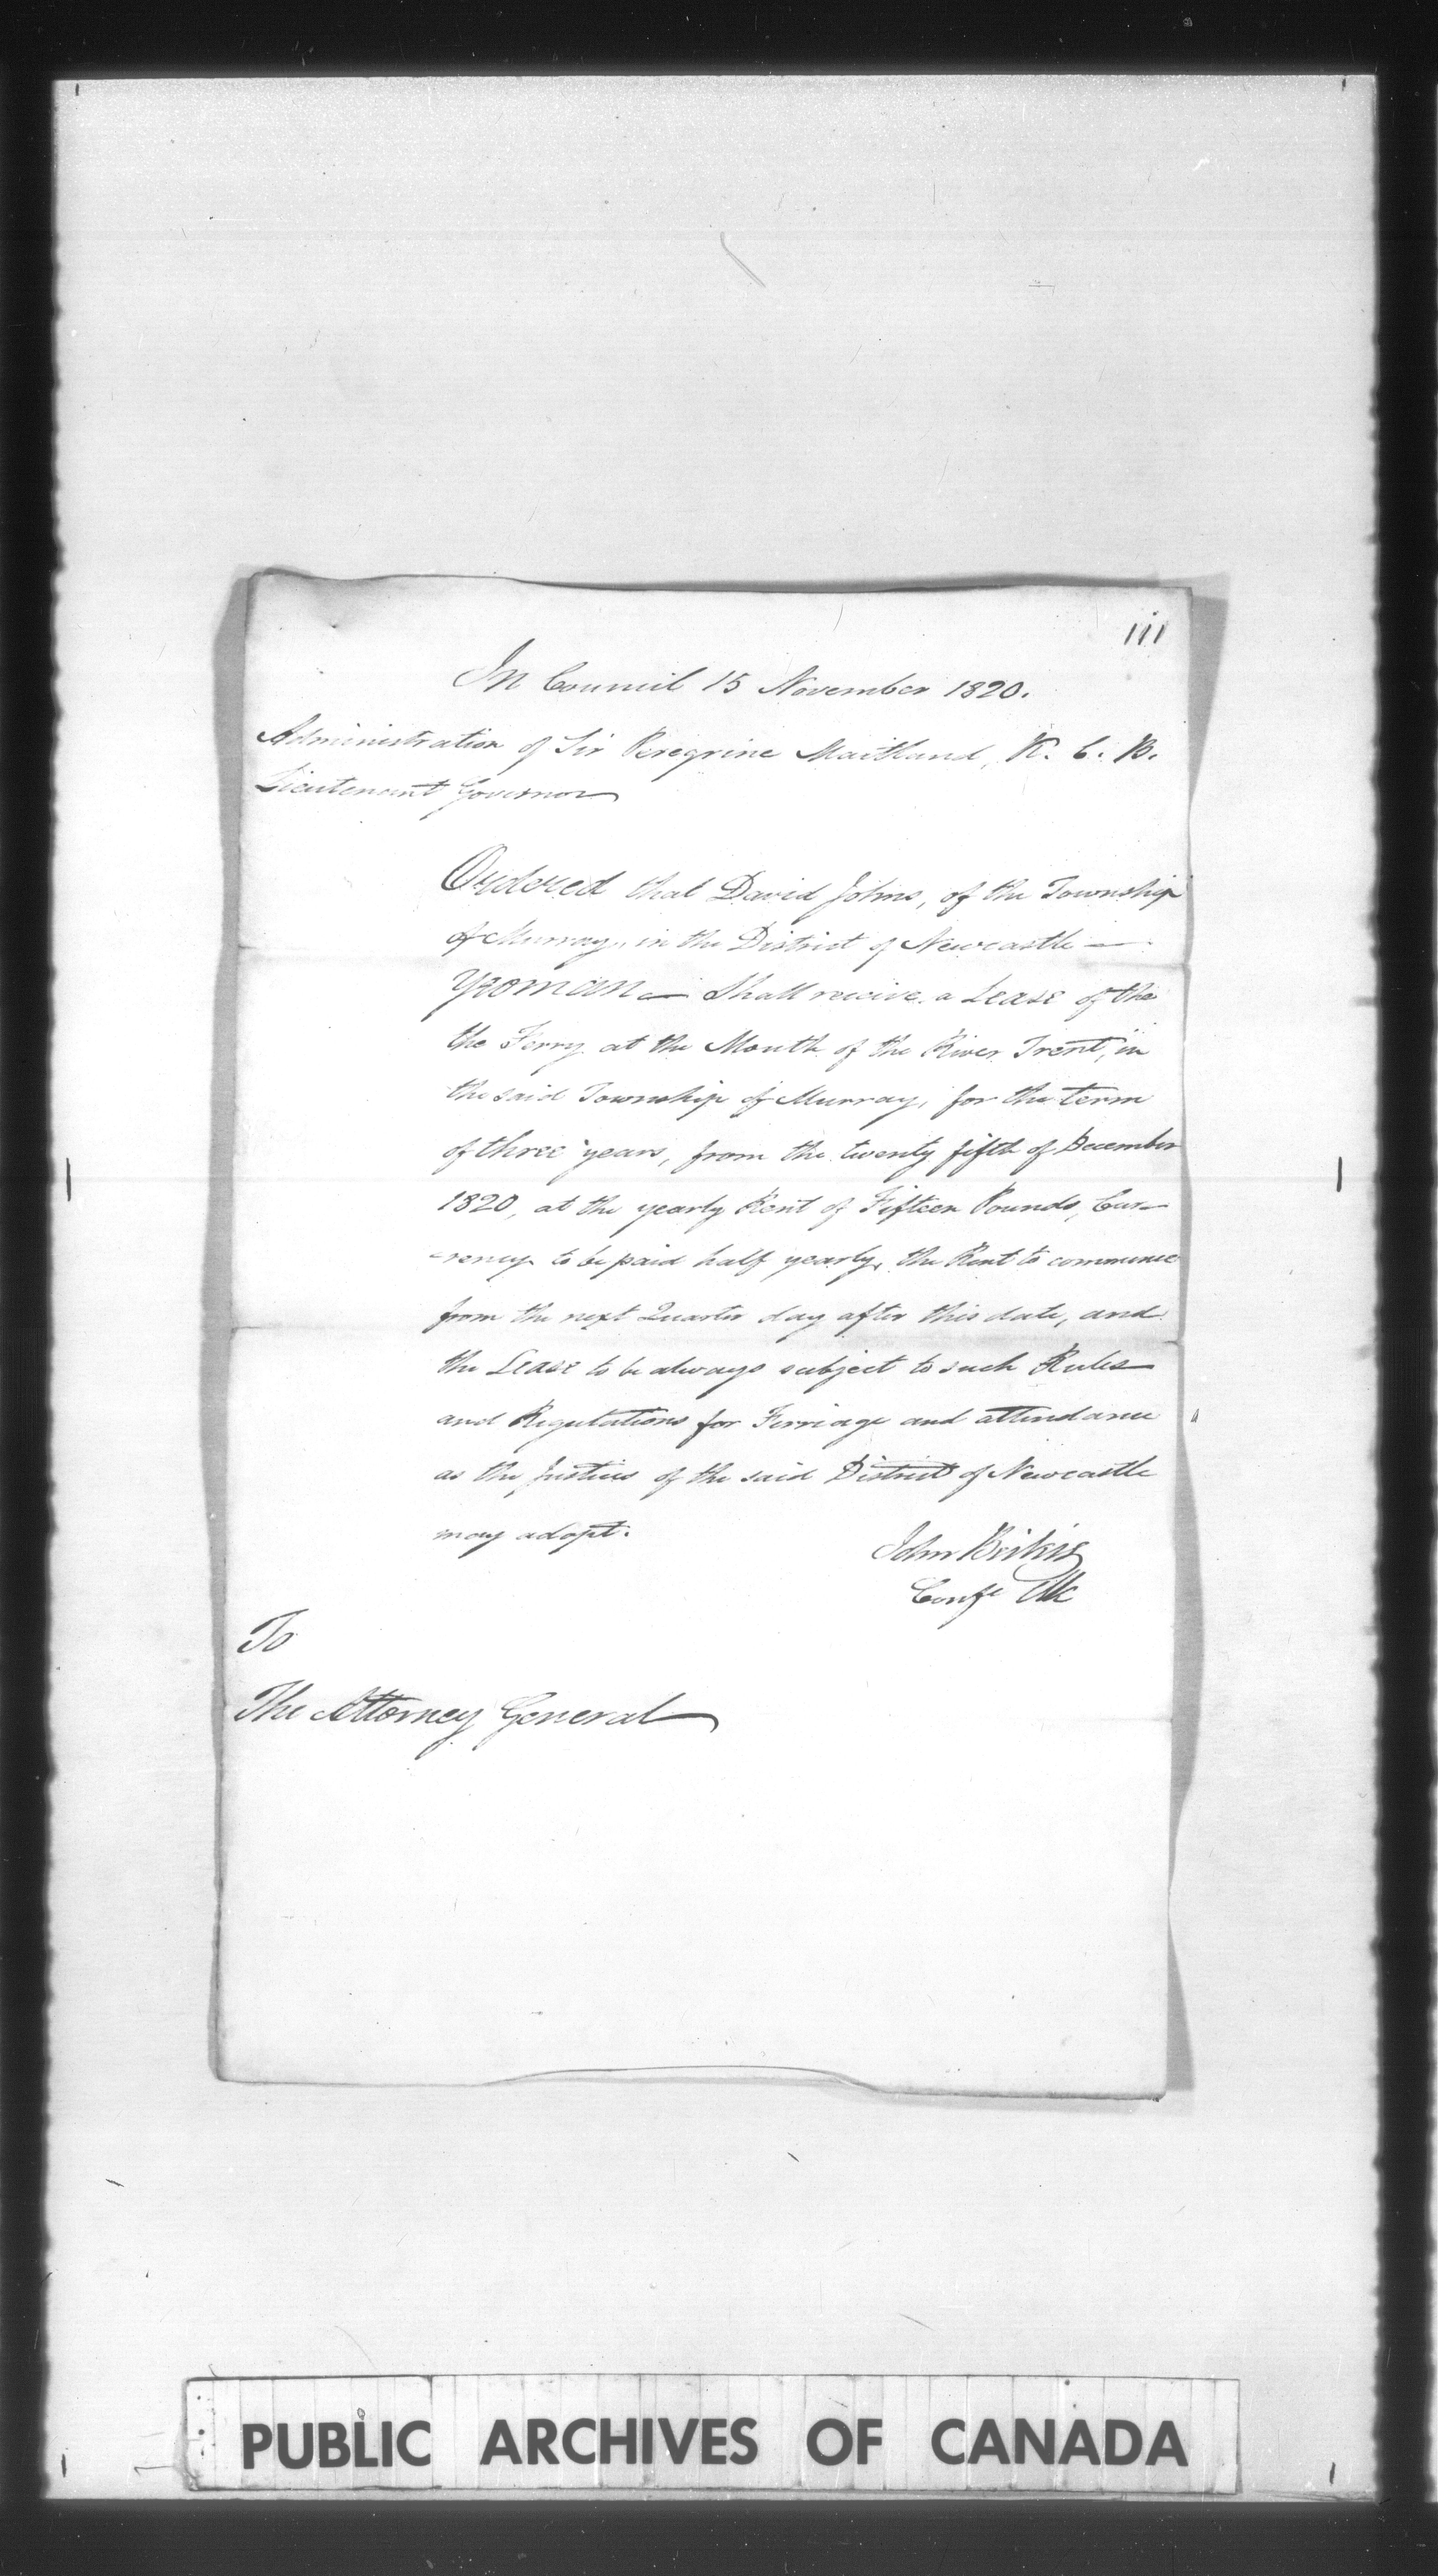 111
In Council 15 November 1820.
Administration of Sir Peregrine Maitland, K. C. B.
Lieutenant Governor
Ordered that David Johns, of the Township
of Murray, in the District of Newcastle —
Yeoman — Shall receive a Lease of the
the Ferry at the Mouth of the River Trent, in
the said Township of Murray, for the term
of three years, from the twenty fifth of December
1820, at the yearly Rent of Fifteen Pounds, Cur-
-rency to be paid half yearly, the Rent to commence
from the next Quarter day after this date, and
the Lease to be always subject to such Rules
and Regulations for Ferriage and attendance
as the Justices of the said District of Newcastle
may adopt.
John Beikie
Conf Clk
To
The Attorney General
PUBLIC ARCHIVES OF CANADA